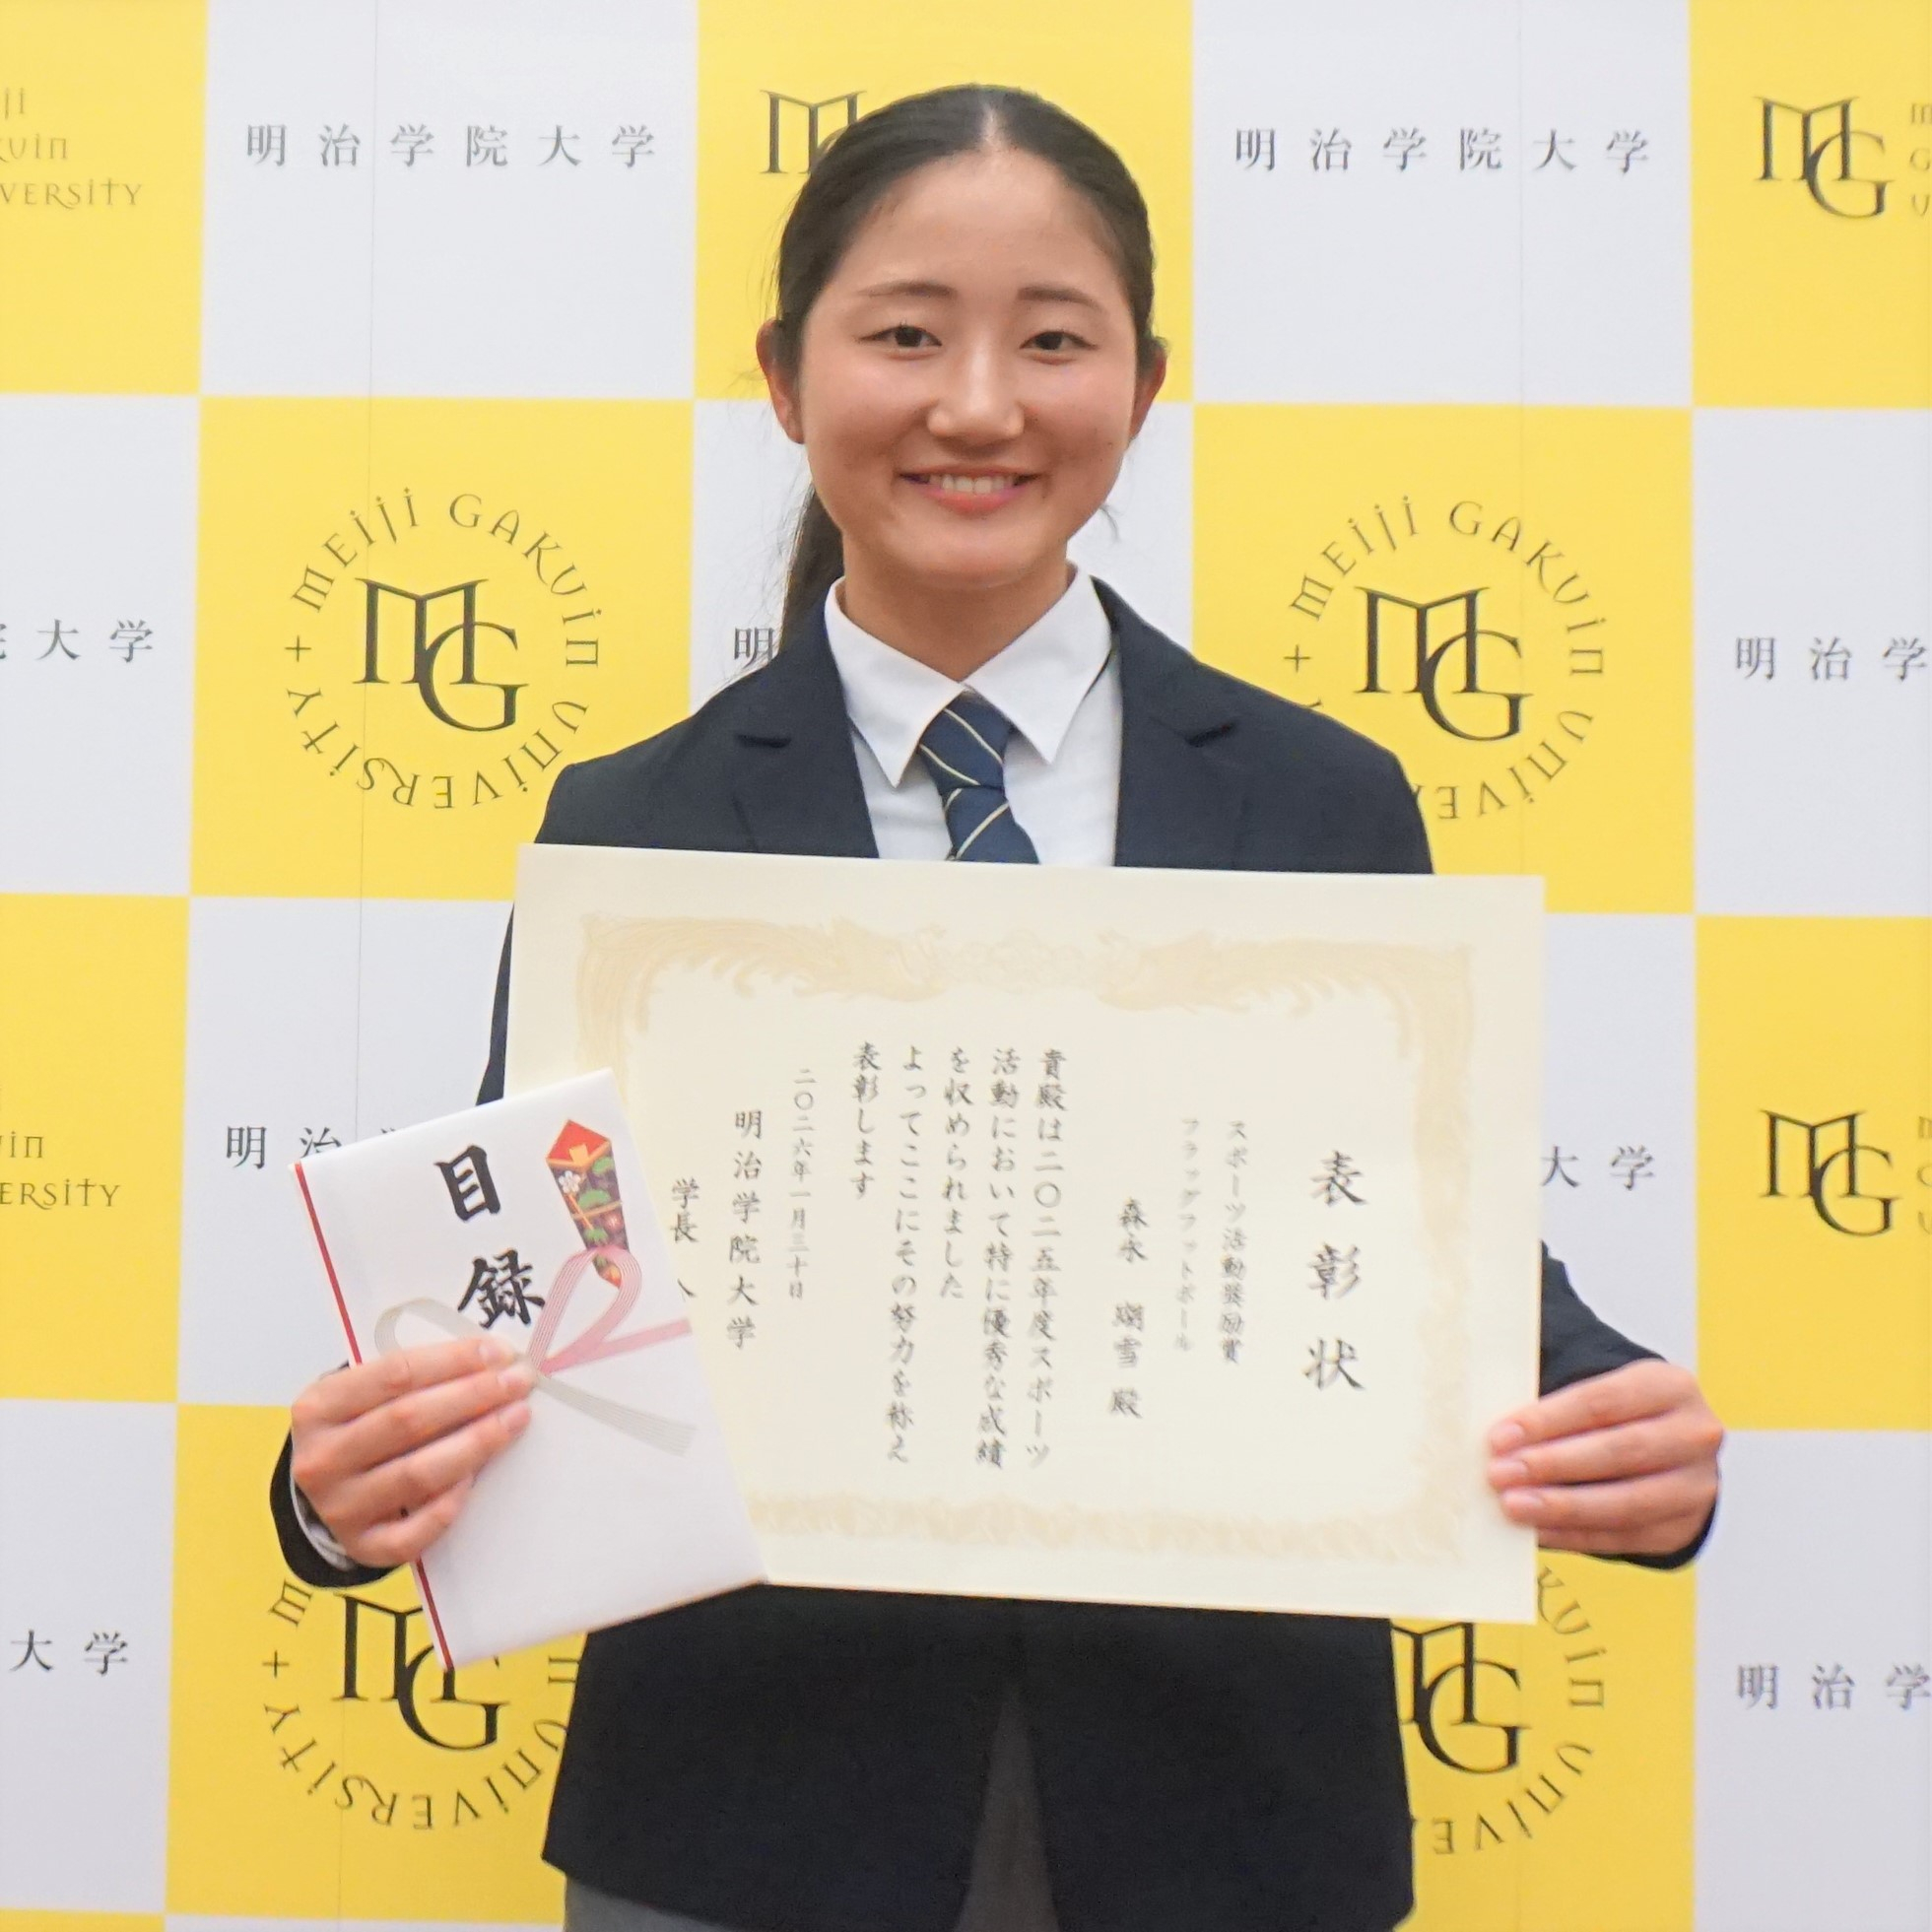 明治学院大学
明治学院大学
MEIJI GAKUIN UNIVERSITY
MG
MEIJI GAKUIN
MG
大学
明治学
明治
大学
MG
大学
MG
MG
明治学
表彰状
スポーツ活動奨励賞
フラッグフットボール
森永 瑚雪 殿
貴殿は二〇二五年度スポーツ
活動において特に優秀な成績
を収められました
よってここにその努力を称え
表彰します
二〇二六年一月三十日
明治学院大学
学長
目録